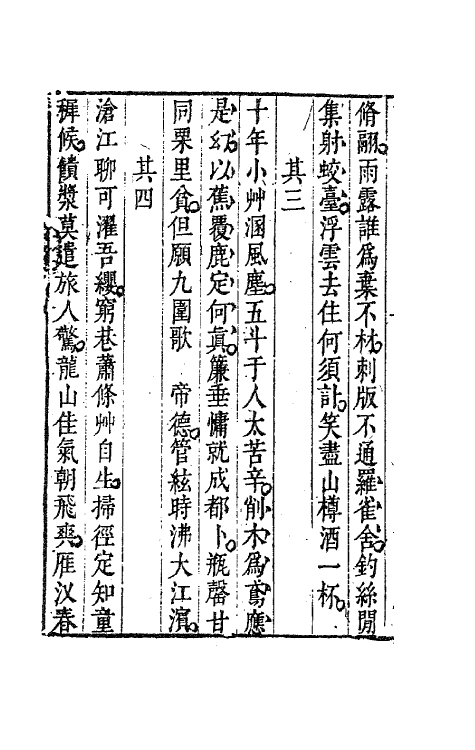 脩翮雨露誰爲棄不材刺版不通羅雀舍釣絲閒
集射蛟臺浮雲去住何須計笑盡山樽酒一杯
其三
十年小艸溷風塵五斗于人太苦辛削木爲鳶應
是幻以蕉覆鹿定何真簾垂慵就成都卜瓶罄甘
同栗里貧但願九圍歌　帝德管絃時沸大江濱
其四
滄江聊可濯吾纓窮巷蕭條艸自生掃徑定知童
稺候饋漿莫遣旅人驚龍山佳氣朝飛爽雁汊春